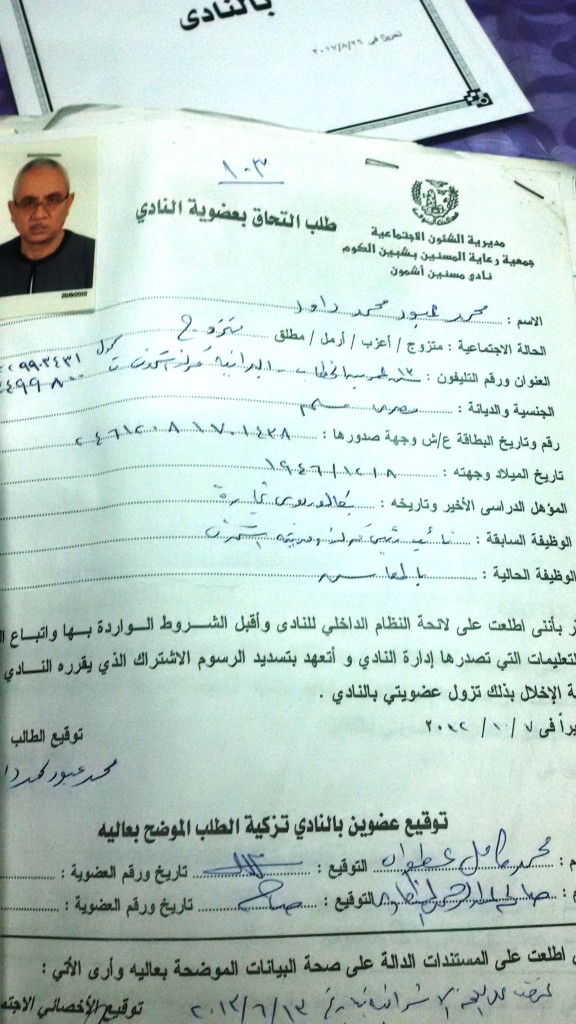 بالنادى
تحريرا فى ٢٠١٧/٨/٢٦
١٠٣
مديرية الشئون الاجتماعية
جمعية رعاية المسنين بشبين الكوم
نادى مسنين أشمون
طلب التحاق بعضوية النادي
20/9/2012
الاسم : محمد عبود محمد داود
الحالة الاجتماعية : متزوج / أعزب / أرمل / مطلق متزوج
العنوان ورقم التليفون : البرانية مركز أشمون
الجنسية والديانة : مصرى مسلم
رقم وتاريخ البطاقة ع/ش وجهة صدورها : ٢٤٦١٢٠٨١٧٠١٤٣٨
تاريخ الميلاد وجهته : ١٩٤٦/١٢/٨
المؤهل الدراسى الأخير وتاريخه : بكالوريوس تجارة
الوظيفة السابقة : نائب رئيس مركز ومدينة أشمون
الوظيفة الحالية : بالمعاش
بأننى اطلعت على لائحة النظام الداخلي للنادى وأقبل الشروط الواردة بها واتباع
التعليمات التي تصدرها إدارة النادي و أتعهد بتسديد الرسوم الاشتراك الذي يقرره النادي
الإخلال بذلك تزول عضويتي بالنادي .
فى ٧ / ١٠ / ٢٠١٢
توقيع الطالب
محمد عبود محمد
توقيع عضوين بالنادي تزكية الطلب الموضح بعاليه
محمد كامل عطوان التوقيع : تاريخ ورقم العضوية :
صالح التوقيع : صالح تاريخ ورقم العضوية :
اطلعت على المستندات الدالة على صحة البيانات الموضحة بعاليه وأرى الأتي :
٢٠١٣/٦/١٣ توقيع الأخصائي